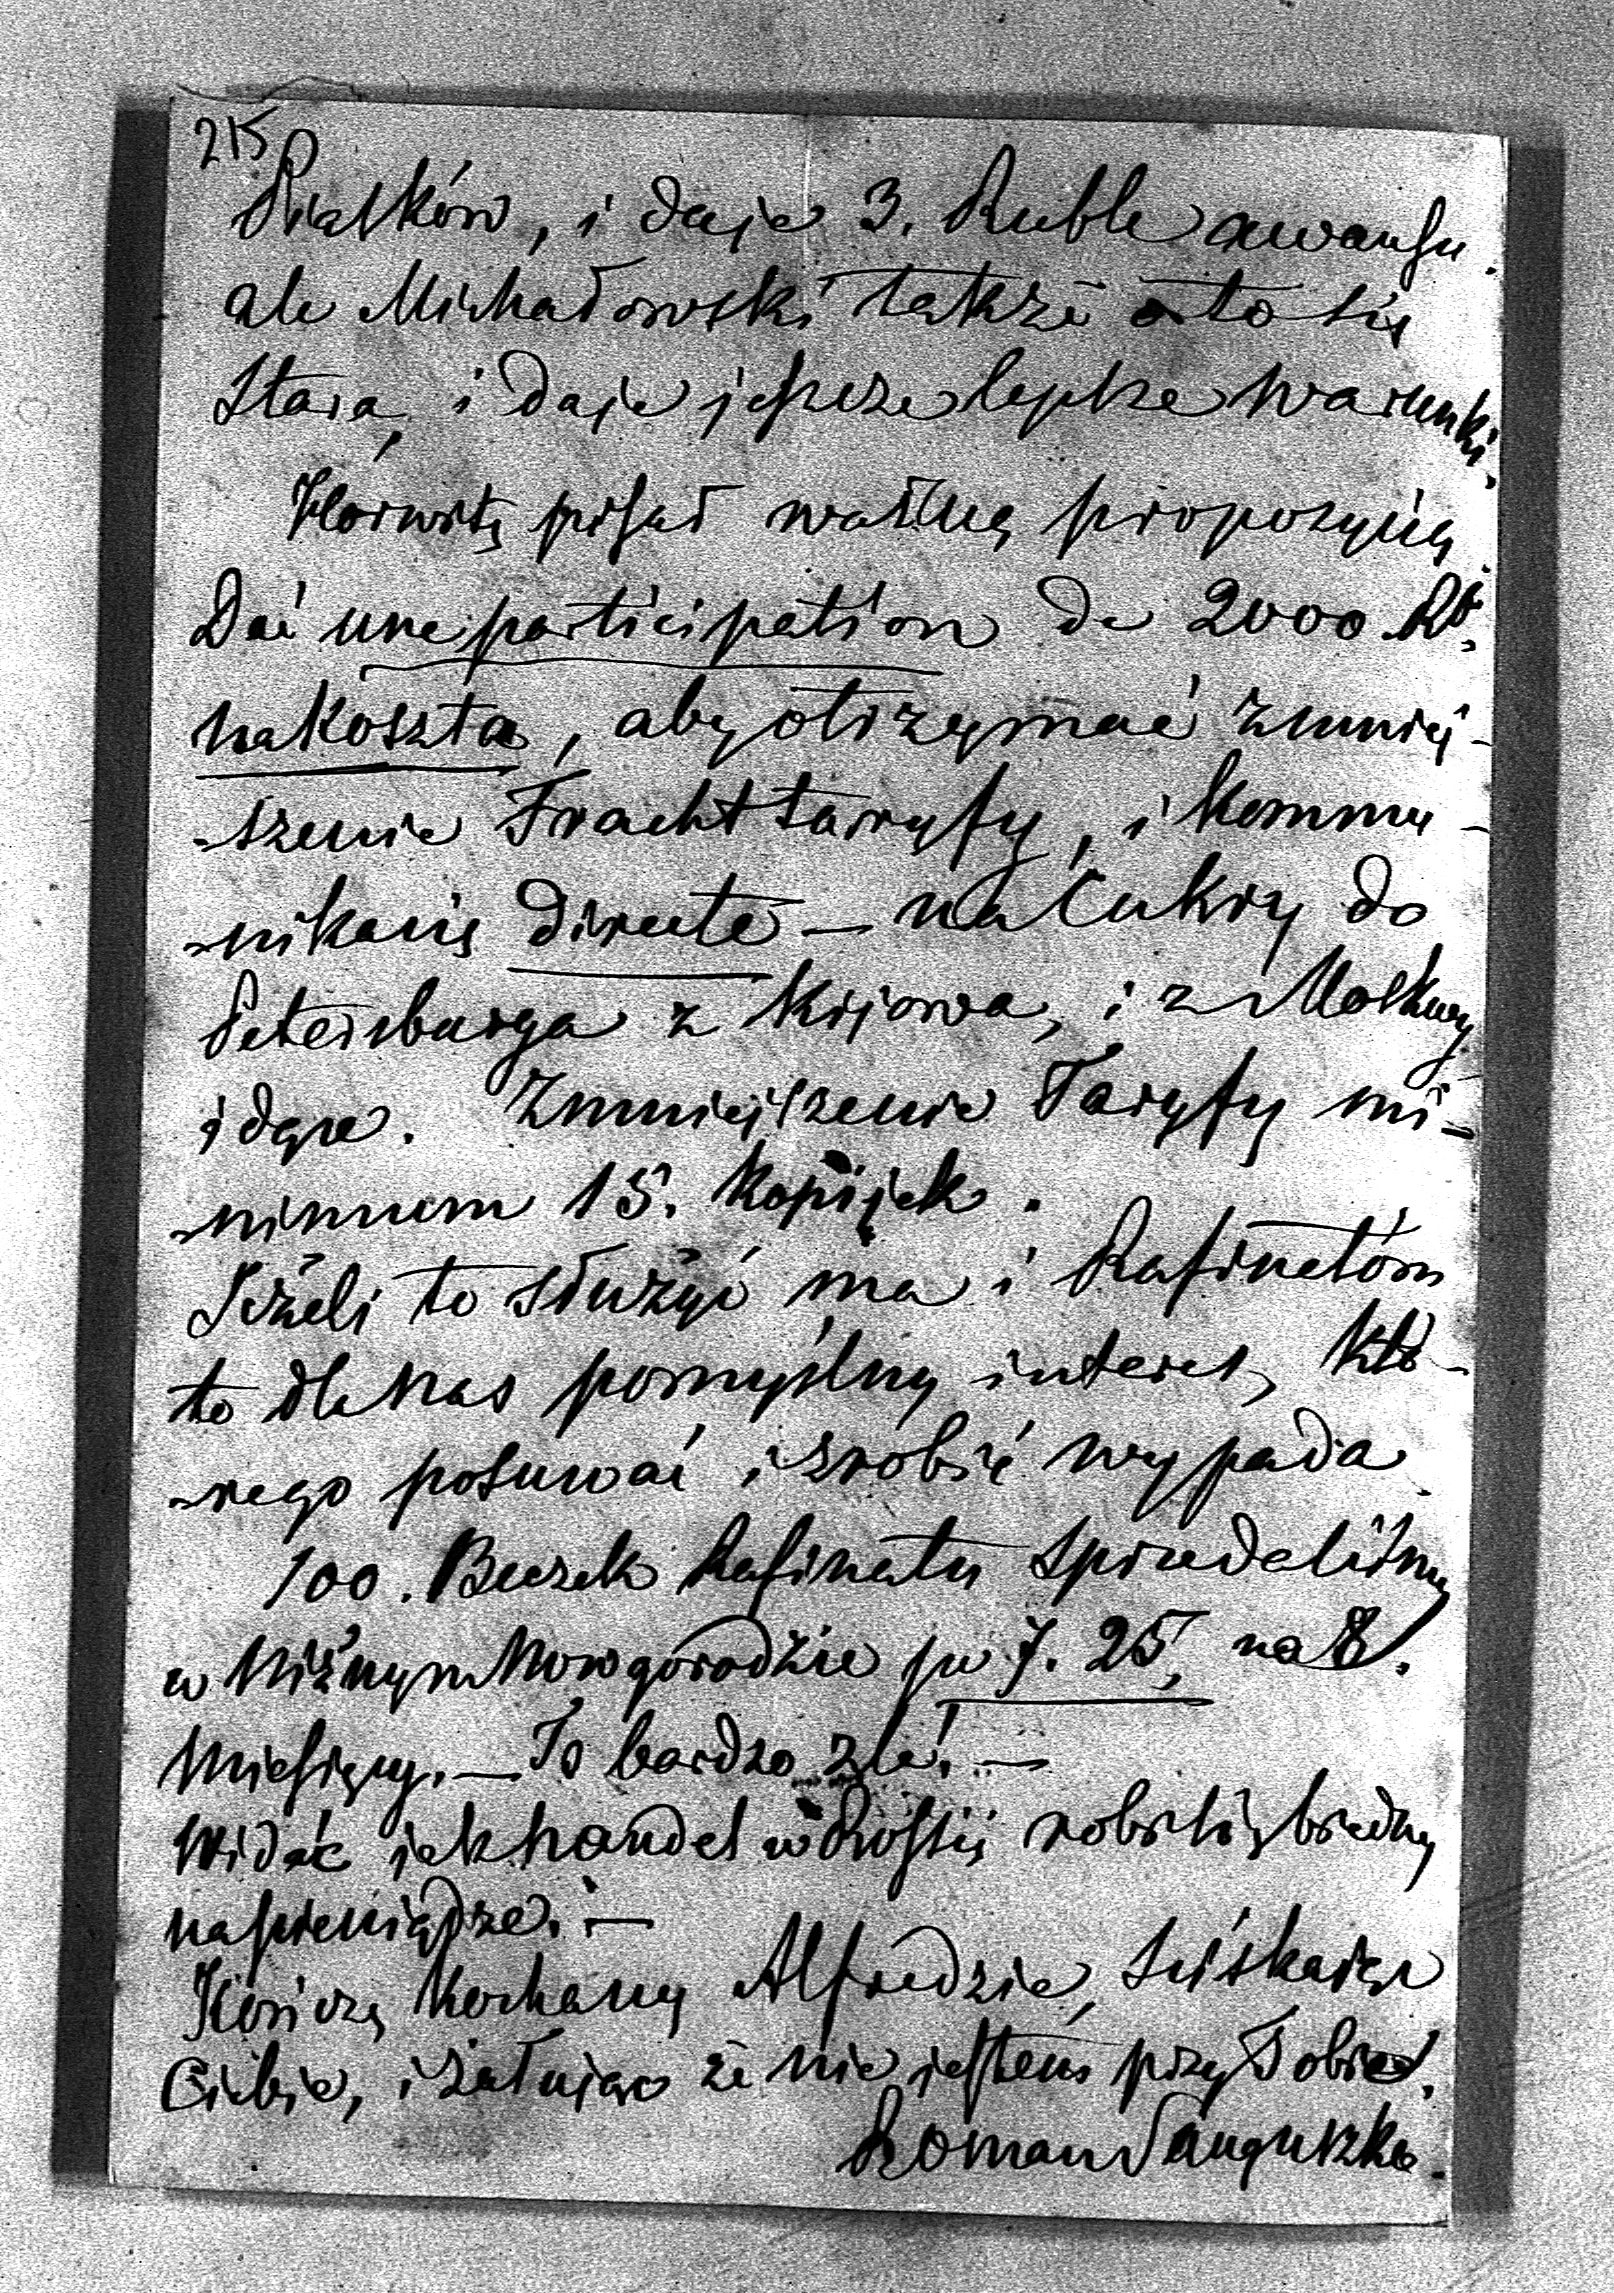 215
Piasków, i daje 3. Ruble awansu.
ale Michałowski także o to się
stara, i daje jeszcze lepsze warunki.
Horwitz pisał ważną propozycią
Dać une participation de 2000 Rb.
na koszta, aby otrzymać zmniej-
-szenie Fracht taryfy, i kommu-
-nikacią directe — na Cukry do
Petersburga z Kijowa, i z Moskwy
idące. Zmniejszenie Taryfy mi-
-nimum 15. kopijek.
Jeżeli to służyć ma i Rafinatóm
to dla nas pomyślny interes, któ-
-rego posuwać i zrobić wypada.
100. Beczek Rafinatu sprzedaliśmy
w Niżnym Nowgorodzie po 7. 25, na 8.
Miesięcy. — To bardzo źle! —
Widać jak handel w Rossij robi się biedny
na pieniądze. —
Kończę kochany Alfredzie, ściskaiąc
Ciebie, i żałując że nie jestem przy Tobie.
Roman Sanguszko.